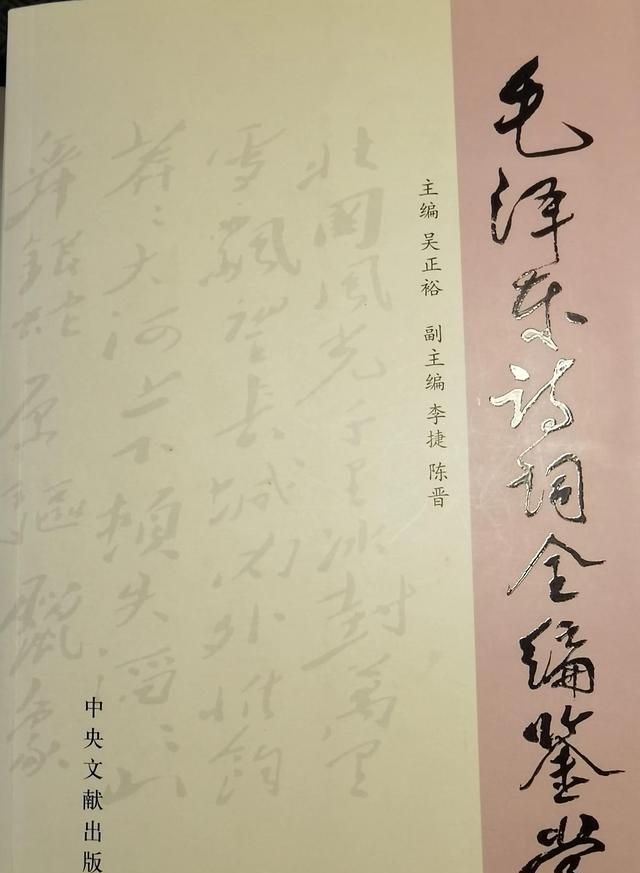 毛泽东诗词全编鉴赏
主编 吴正裕 副主编 李捷 陈晋
北国风光千里冰封万里
雪飘望长城内外惟余
莽〻大河上下顿失滔〻山
舞银蛇原驱蜡象
中央文献出版